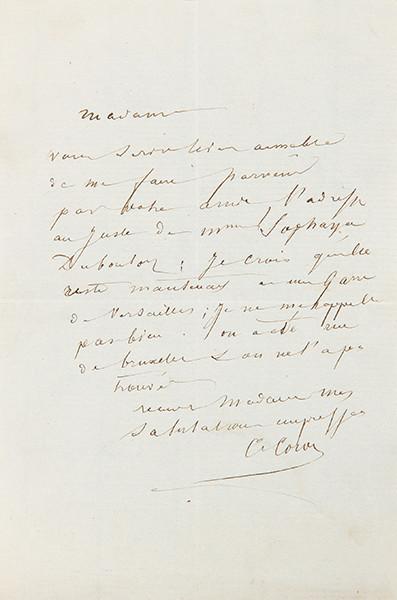 Madame
vous seriez bien aimable
de me faire parvenir
par votre amie l'adresse
au juste de mme
Dubouloz ; je crois qu'elle
reste maintenant
de Versailles ; je ne me rappelle
pas bien . on a été rue
de bruxelles & on ne l'a pas
trouvée
recevez Madame mes
salutations empressées
C. Corot